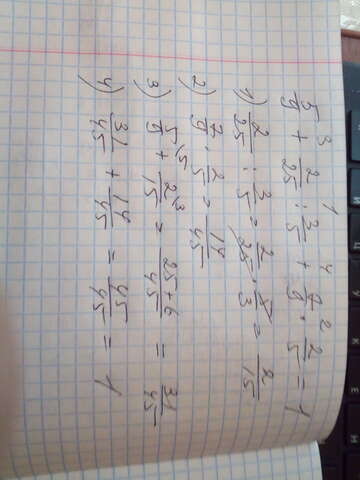 3 1 4 2
5/9 + 2/25 : 3/5 + 7/9 · 2/5 = 1
1) 2/25 : 3/5 = 2/25 · 5/3 = 2/15
2) 7/9 · 2/5 = 14/45
3) 5/9 ^5 + 2/15 ^3 = 25+6/45 = 31/45
4) 31/45 + 14/45 = 45/45 = 1